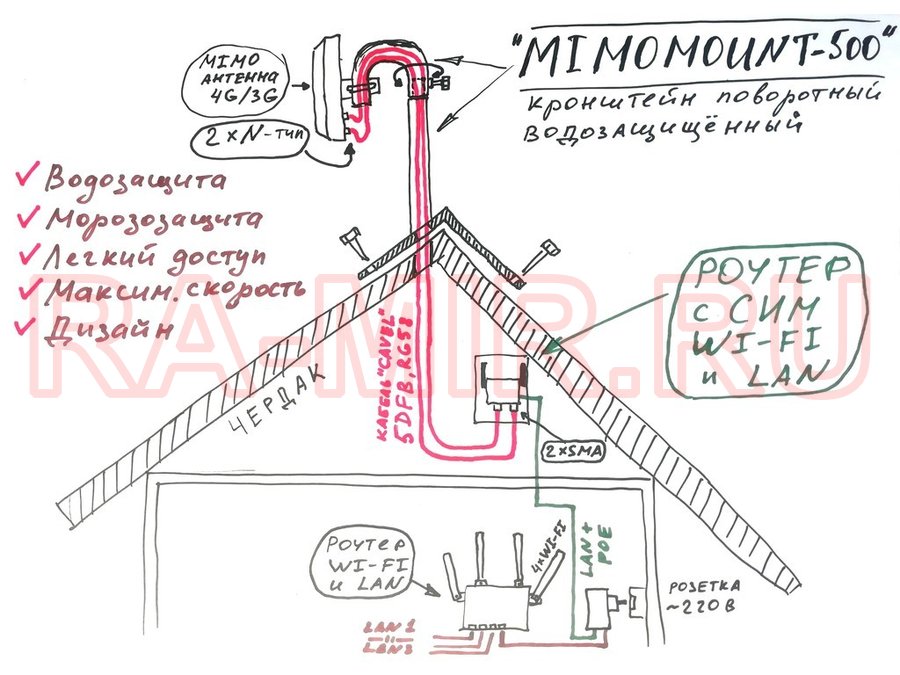 "MIMOMOUNT-500"
кронштейн поворотный
водозащищённый
MIMO
АНТЕННА
4G/3G
2×N-тип
Водозащита
Морозозащита
Легкий доступ
Максим. скорость
Дизайн
RA-MIR.RU
РОУТЕР
с СИМ
WI-FI
и LAN
ЧЕРДАК
КАБЕЛЬ "CAVEL"
5DFB, RG58
2×SMA
LAN+
POE
4×WI-FI
Роутер
WI-FI
и LAN
РОЗЕТКА
~220 В
LAN 1
LAN 3